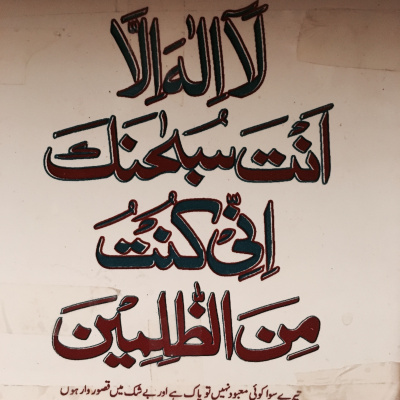 لَآ اِلٰهَ اِلَّا
اَنْتَ سُبْحٰنَكَ
اِنِّيْ كُنْتُ
مِنَ الظّٰلِمِيْنَ
تیرے سوا کوئی معبود نہیں تو پاک ہے اور بے شک میں قصور وار ہوں